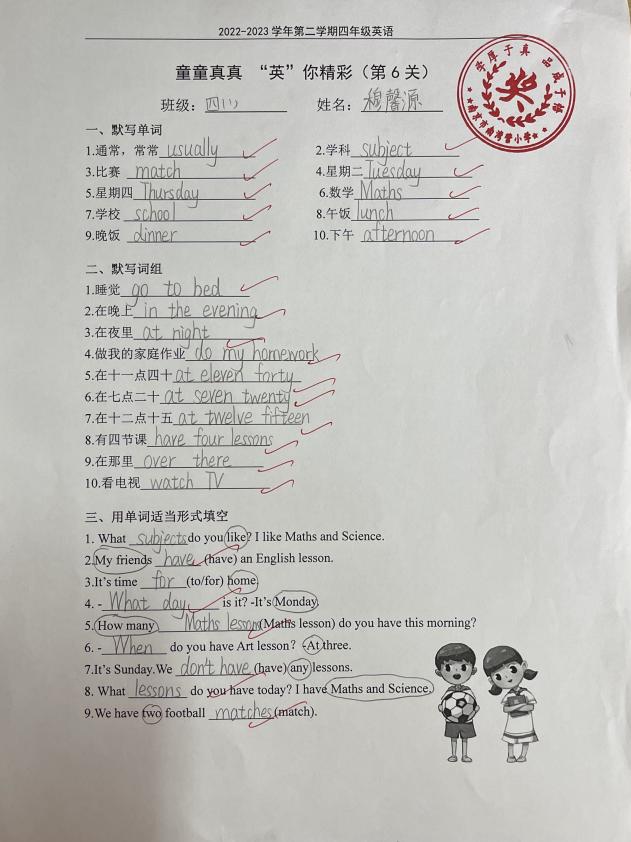 2022-2023 学年第二学期四年级英语
童童真真 “英”你精彩（第 6 关）
班级：四(1) 姓名：穆馨源
学厚于真 品成于恪
奖
南京市南湾营小学
一、默写单词
1.通常，常常 usually 2.学科 subject
3.比赛 match 4.星期二 Tuesday
5.星期四 Thursday 6.数学 Maths
7.学校 school 8.午饭 lunch
9.晚饭 dinner 10.下午 afternoon
二、默写词组
1.睡觉 go to bed
2.在晚上 in the evening
3.在夜里 at night
4.做我的家庭作业 do my homework
5.在十一点四十 at eleven forty
6.在七点二十 at seven twenty
7.在十二点十五 at twelve fifteen
8.有四节课 have four lessons
9.在那里 over there
10.看电视 watch TV
三、用单词适当形式填空
1. What subjects do you like? I like Maths and Science.
2.My friends have (have) an English lesson.
3.It's time for (to/for) home.
4. - What day is it? -It's Monday.
5. How many Maths lesson(Maths lesson) do you have this morning?
6. - When do you have Art lesson? -At three.
7.It's Sunday.We don't have (have) any lessons.
8. What lessons do you have today? I have Maths and Science.
9.We have two football matches (match).